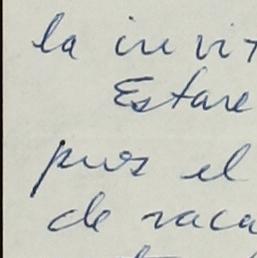 la invit
Estare
pues el
de vaca